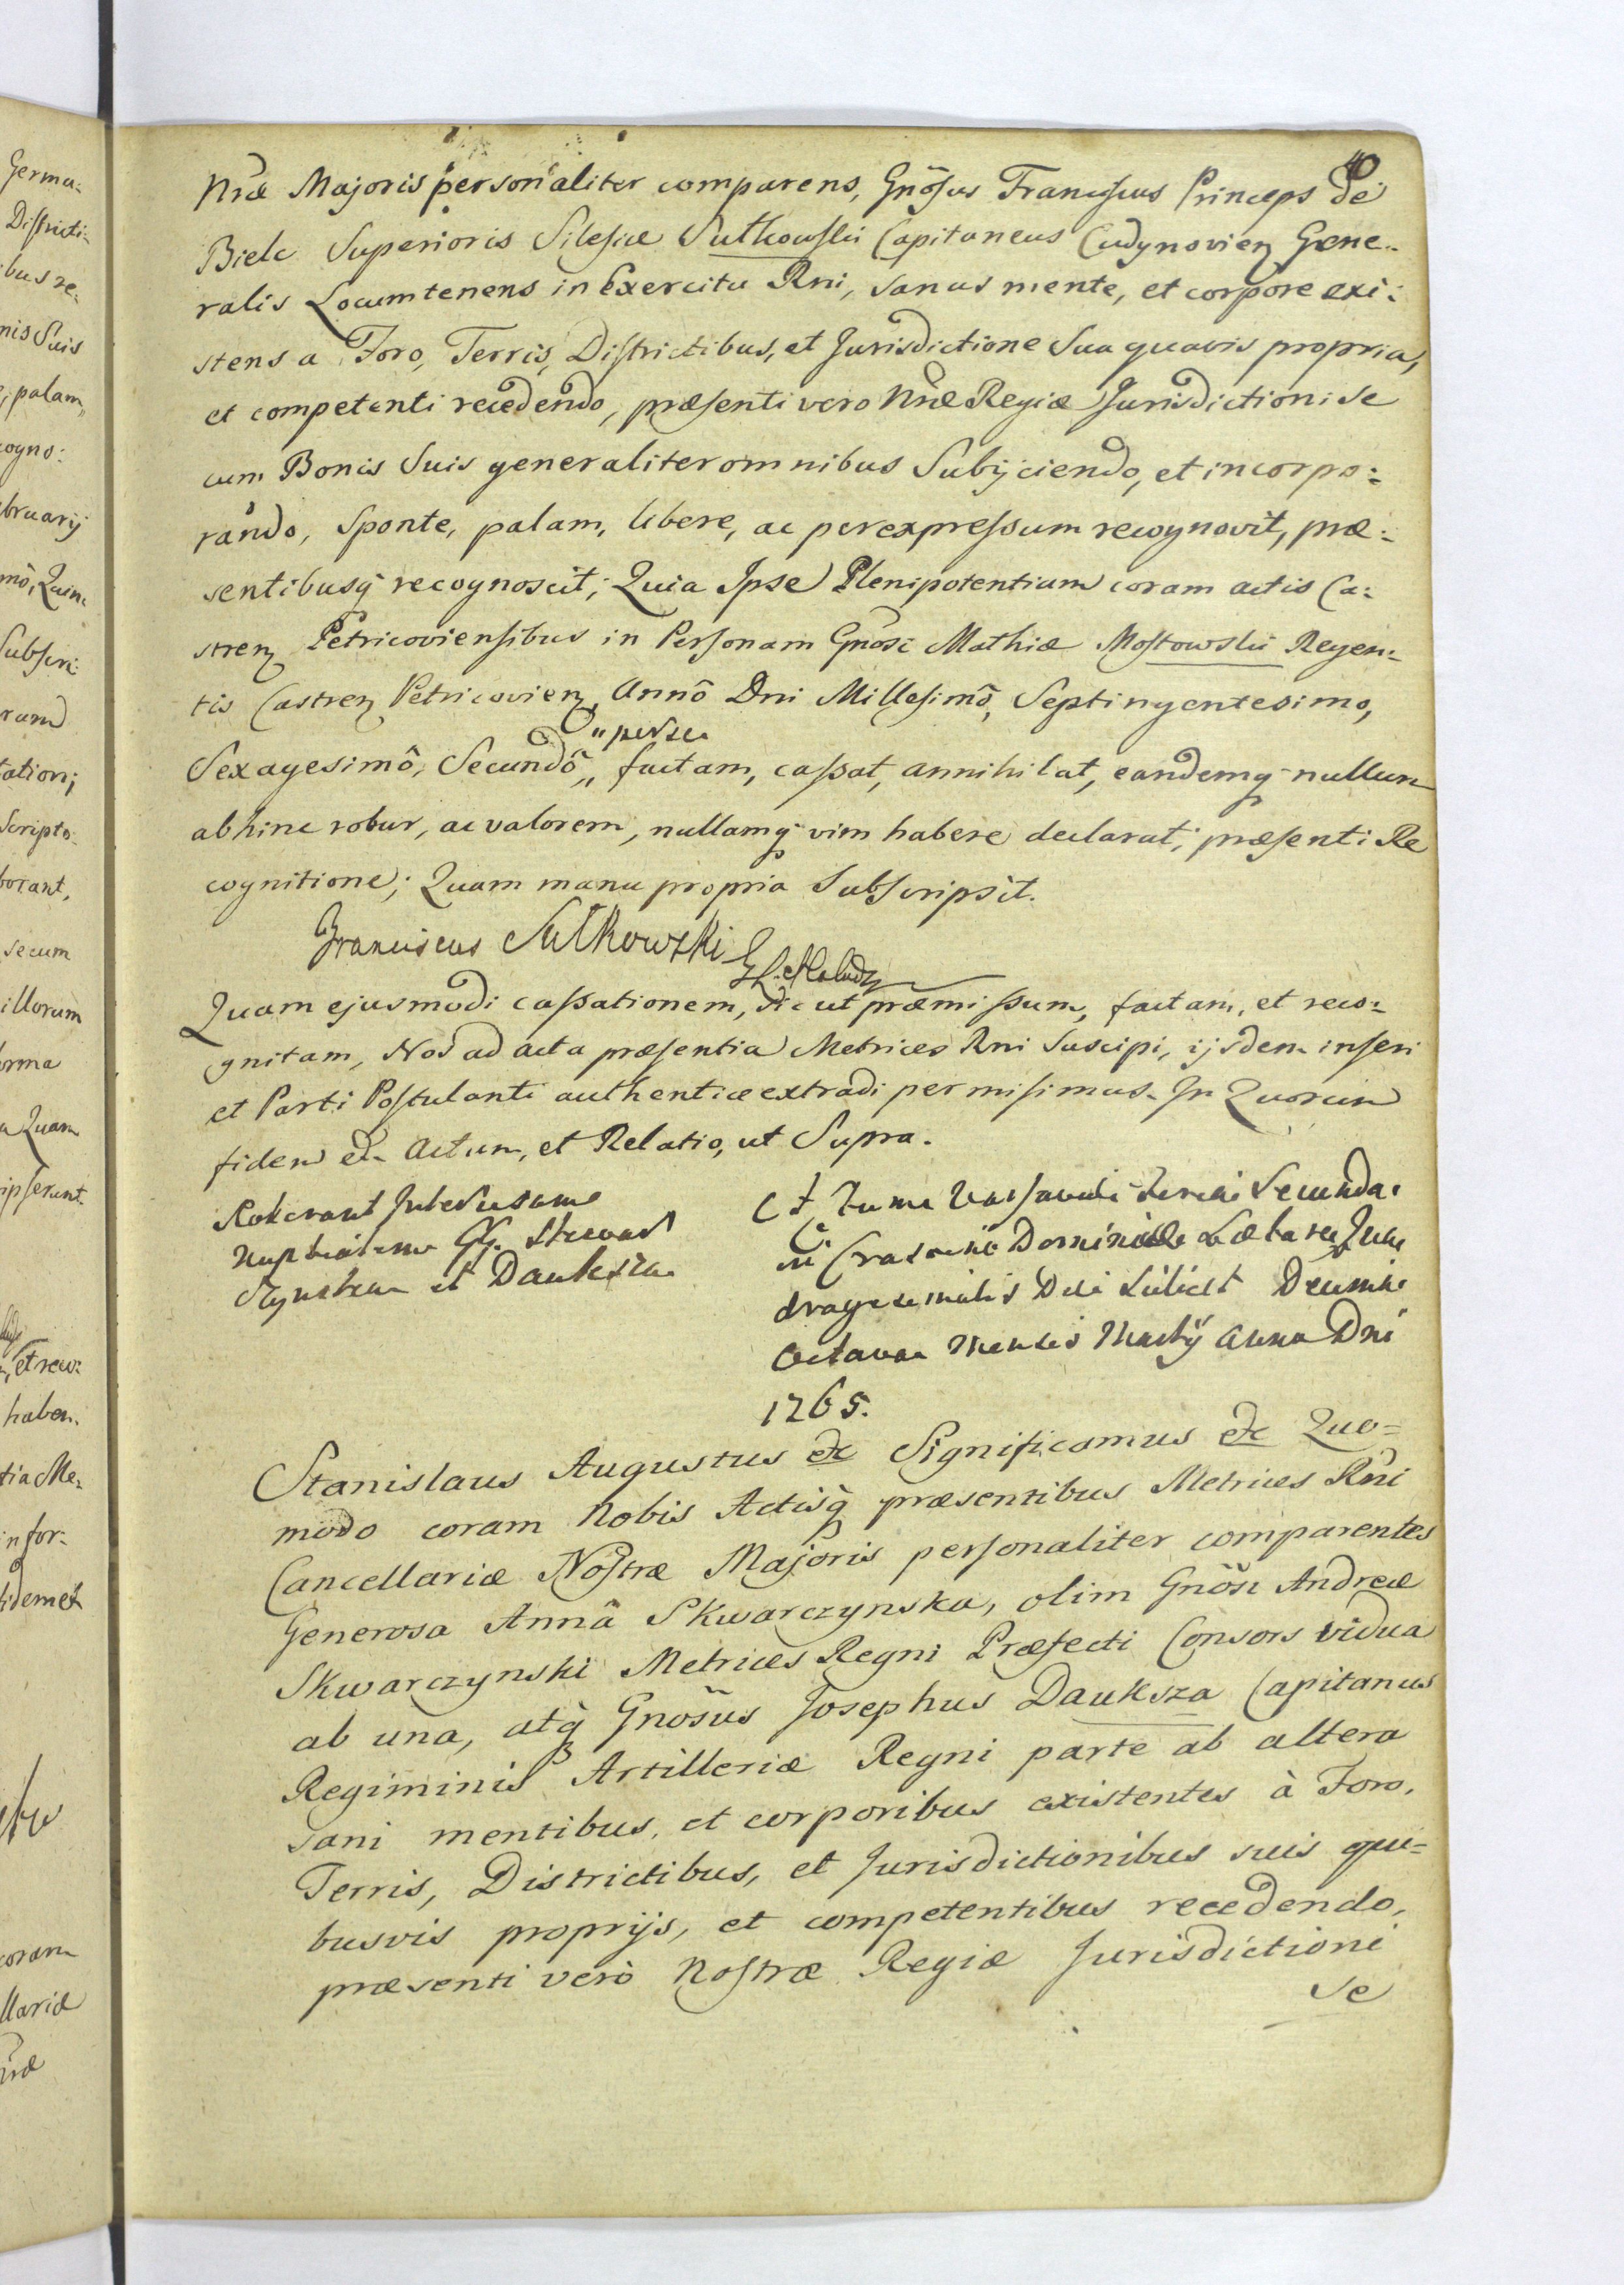 40
Nrae Majoris personaliter comparens, Gnosus Franciscus Princeps de
Biele Superioris Silesiae Sulkowski Capitaneus Cudynovien Gene-
ralis Locumtenens in Exercitu Rni, sanus mente, et corpore exi:
stens a Foro, Terris, Districtibus, et Jurisdictione Sua quavis propria,
et competenti recedendo, praesenti vero Nrae Regiae Jurisdictioni se
cum Bonis Suis generaliter omnibus Subijciendo, et incorpo:
rando, Sponte, palam, libere, ac per expressum recognovit, prae:
sentibusq recognoscit; Quia Ipse Plenipotentiam coram actis Ca:
stren Petricoviensibus in Personam Gnosi Mathiae Mostowski Regen:
tis Castren Petricovien, Annô Dni Millesimô, Septingentesimo,
"per se
Sexagesimô, Secundô," factam, cassat, annihilat, eandemq nullum
abhinc robur, ac valorem, nullamq vim habere declarat; praesenti Re
cognitione; Quam manu propria Subscripsit.
Franciscus Sulkowski
Quam ejusmodi cassationem, sic ut praemissum, factam, et reco:
gnitam, Nos ad acta praesentia Metrices Rni Suscipi, ijsdem inseri
et Parti Postulanti authenticae extradi permisimus. In Quorum
fidem etc. Actum, et Relatio, ut Supra.
Roborant Inter
et Dauksza
Actum Varsaviae Feria Secunda
in Crastino Dominicae Laetare Qua
dragesimalis Die scilicet Decima
Octava Mensis Martij Anno Dni
1765.
Stanislaus Augustus etc Significamus etc Quo=
modo coram Nobis Actisq praesentibus Metrices Rni
Cancellariae Nostrae Majoris personaliter comparentes
Generosa Anna Skwarczynska, olim Gnosi Andreae
Skwarczynski Metrices Regni Praefecti Consors vidua
ab una, atq Gnosus Josephus Dauksza Capitanus
Regiminis Artilleriae Regni parte ab altera
sani mentibus, et corporibus existentes à Foro,
Terris, Districtibus, et Jurisdictionibus suis qui=
busvis proprijs, et competentibus recedendo,
praesenti verò Nostrae Regiae Jurisdictioni
se